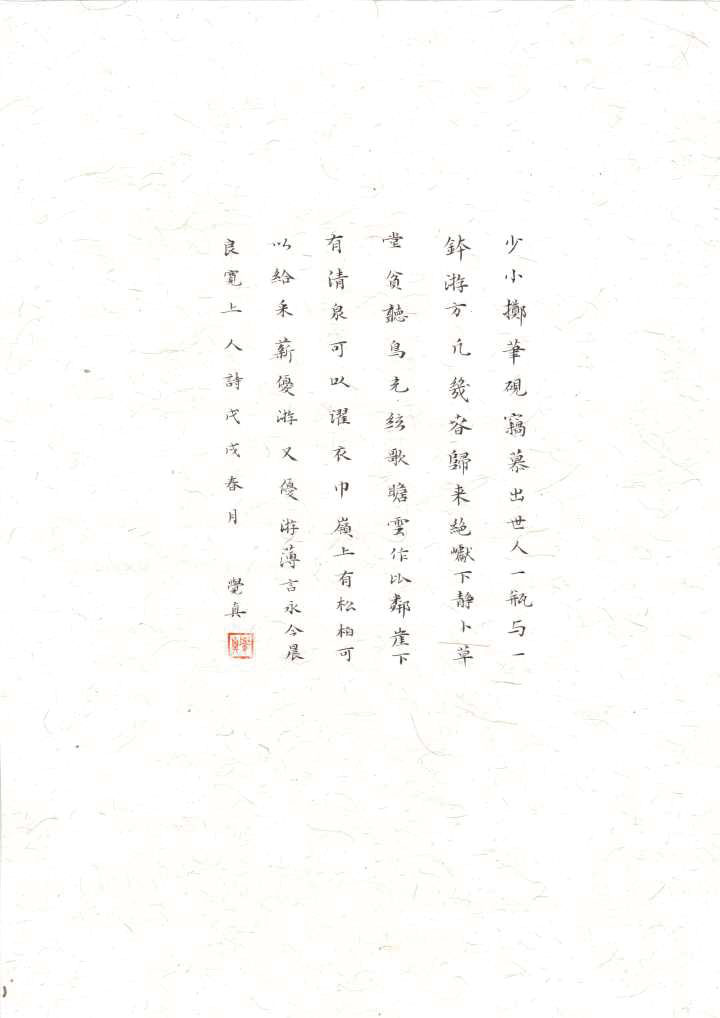 少小擲筆硯竊慕出世人一瓶与一
鉢游方凡幾春歸来絶巘下静卜草
堂貧聽鳥充絃歌瞻雲作比鄰崖下
有清泉可以濯衣巾嶺上有松柏可
以給采薪優游又優游薄言永今晨
良寛上人詩戊戌春月 覺真